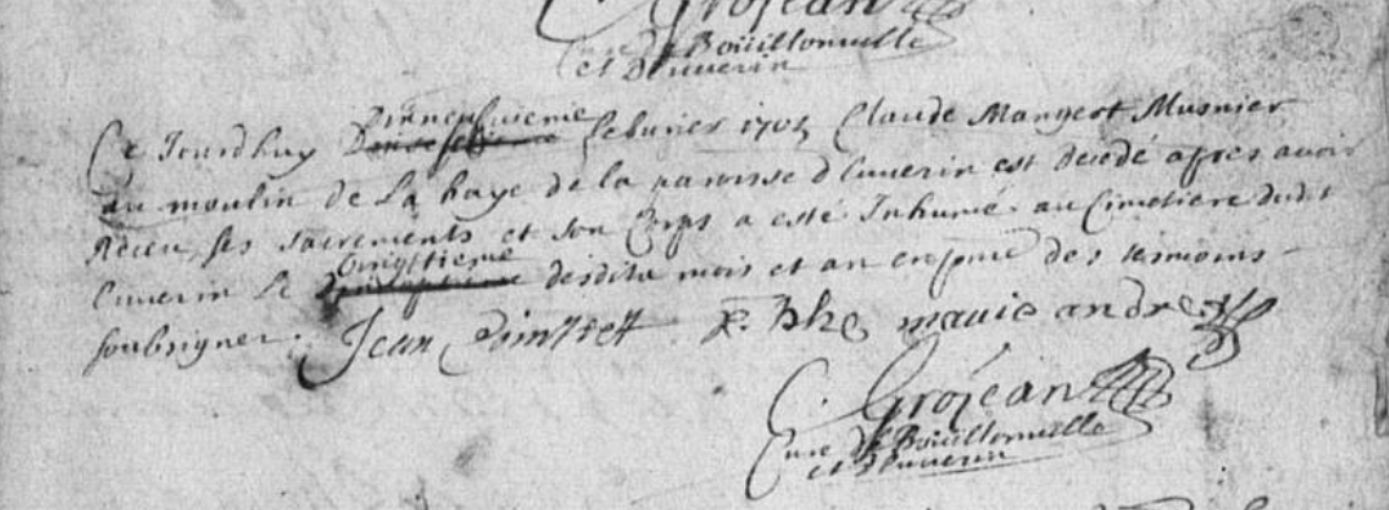 C. Grojean
Curé de Boüillonuille
et D'euuerin
Ce Jourdhuy Dixneufuieme feburier 1705 Claude Mangeot Musnier
au moulin de La haye de la paroisse d'Euuerin est decedé apres auoir
Receu ses sacrements et son Corps a esté Inhumé au Cimetiere dudit
Euuerin Le vingttieme desdits mois et an en presence des tesmoins
soubsigner. Jean andre
C. Grojean
Curé de Boüillonuille
et D'euuerin